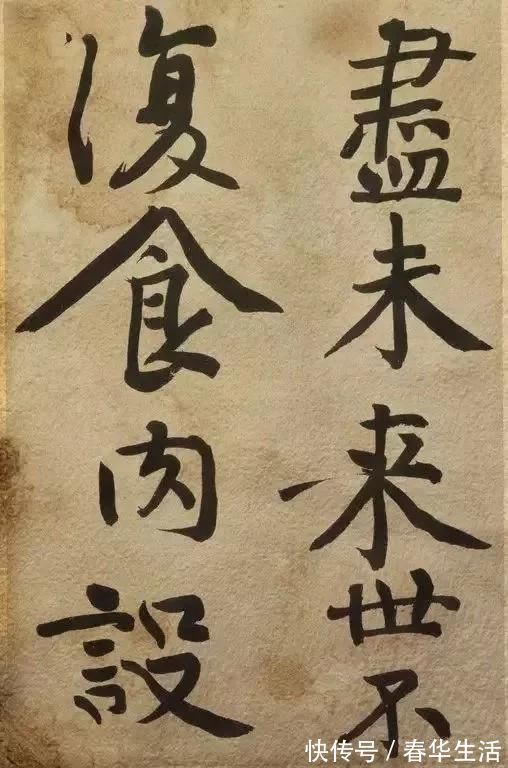 盡未来世不
復食肉設
快传号／春华生活